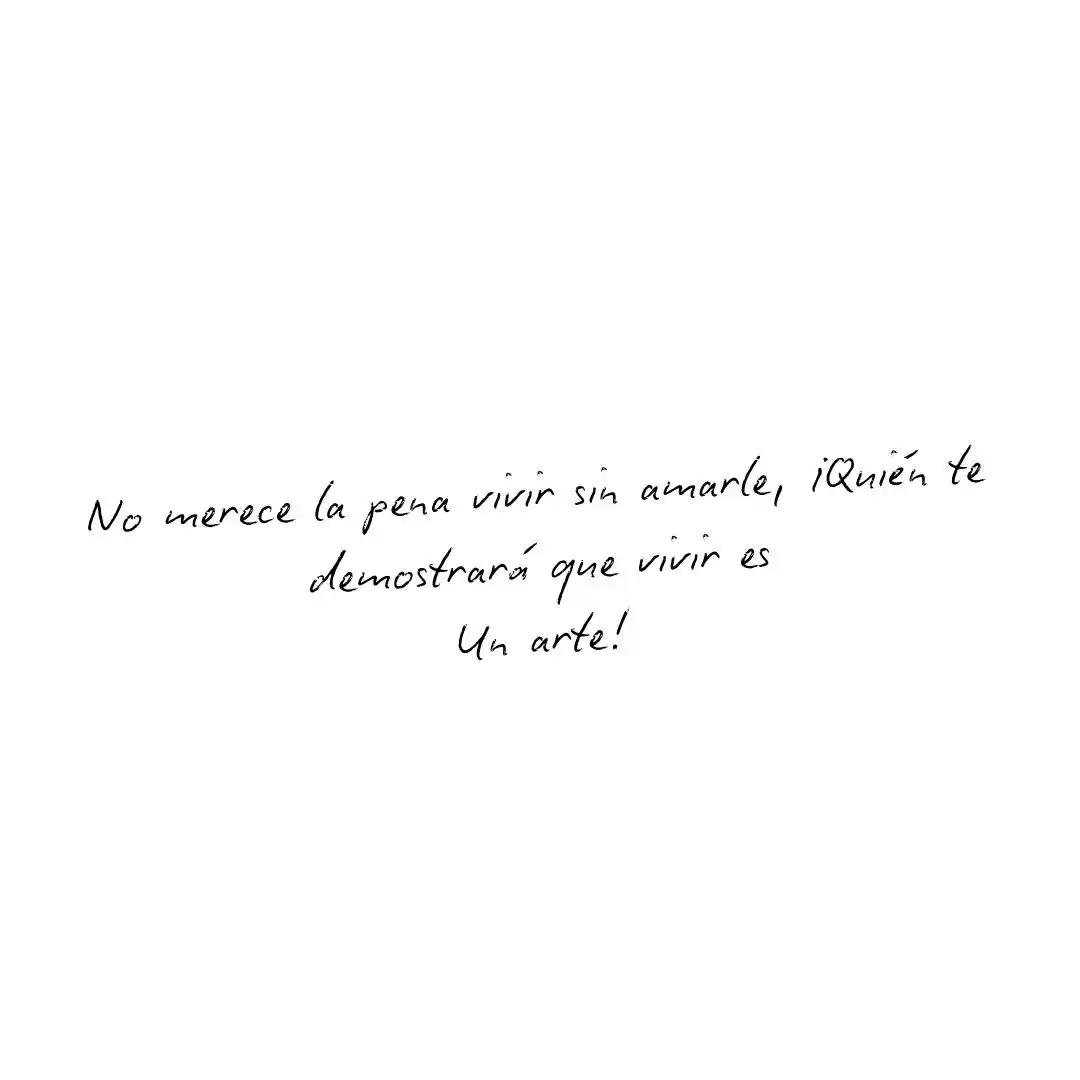 No merece la pena vivir sin amarle, ¡Quién te
demostrará que vivir es
Un arte!